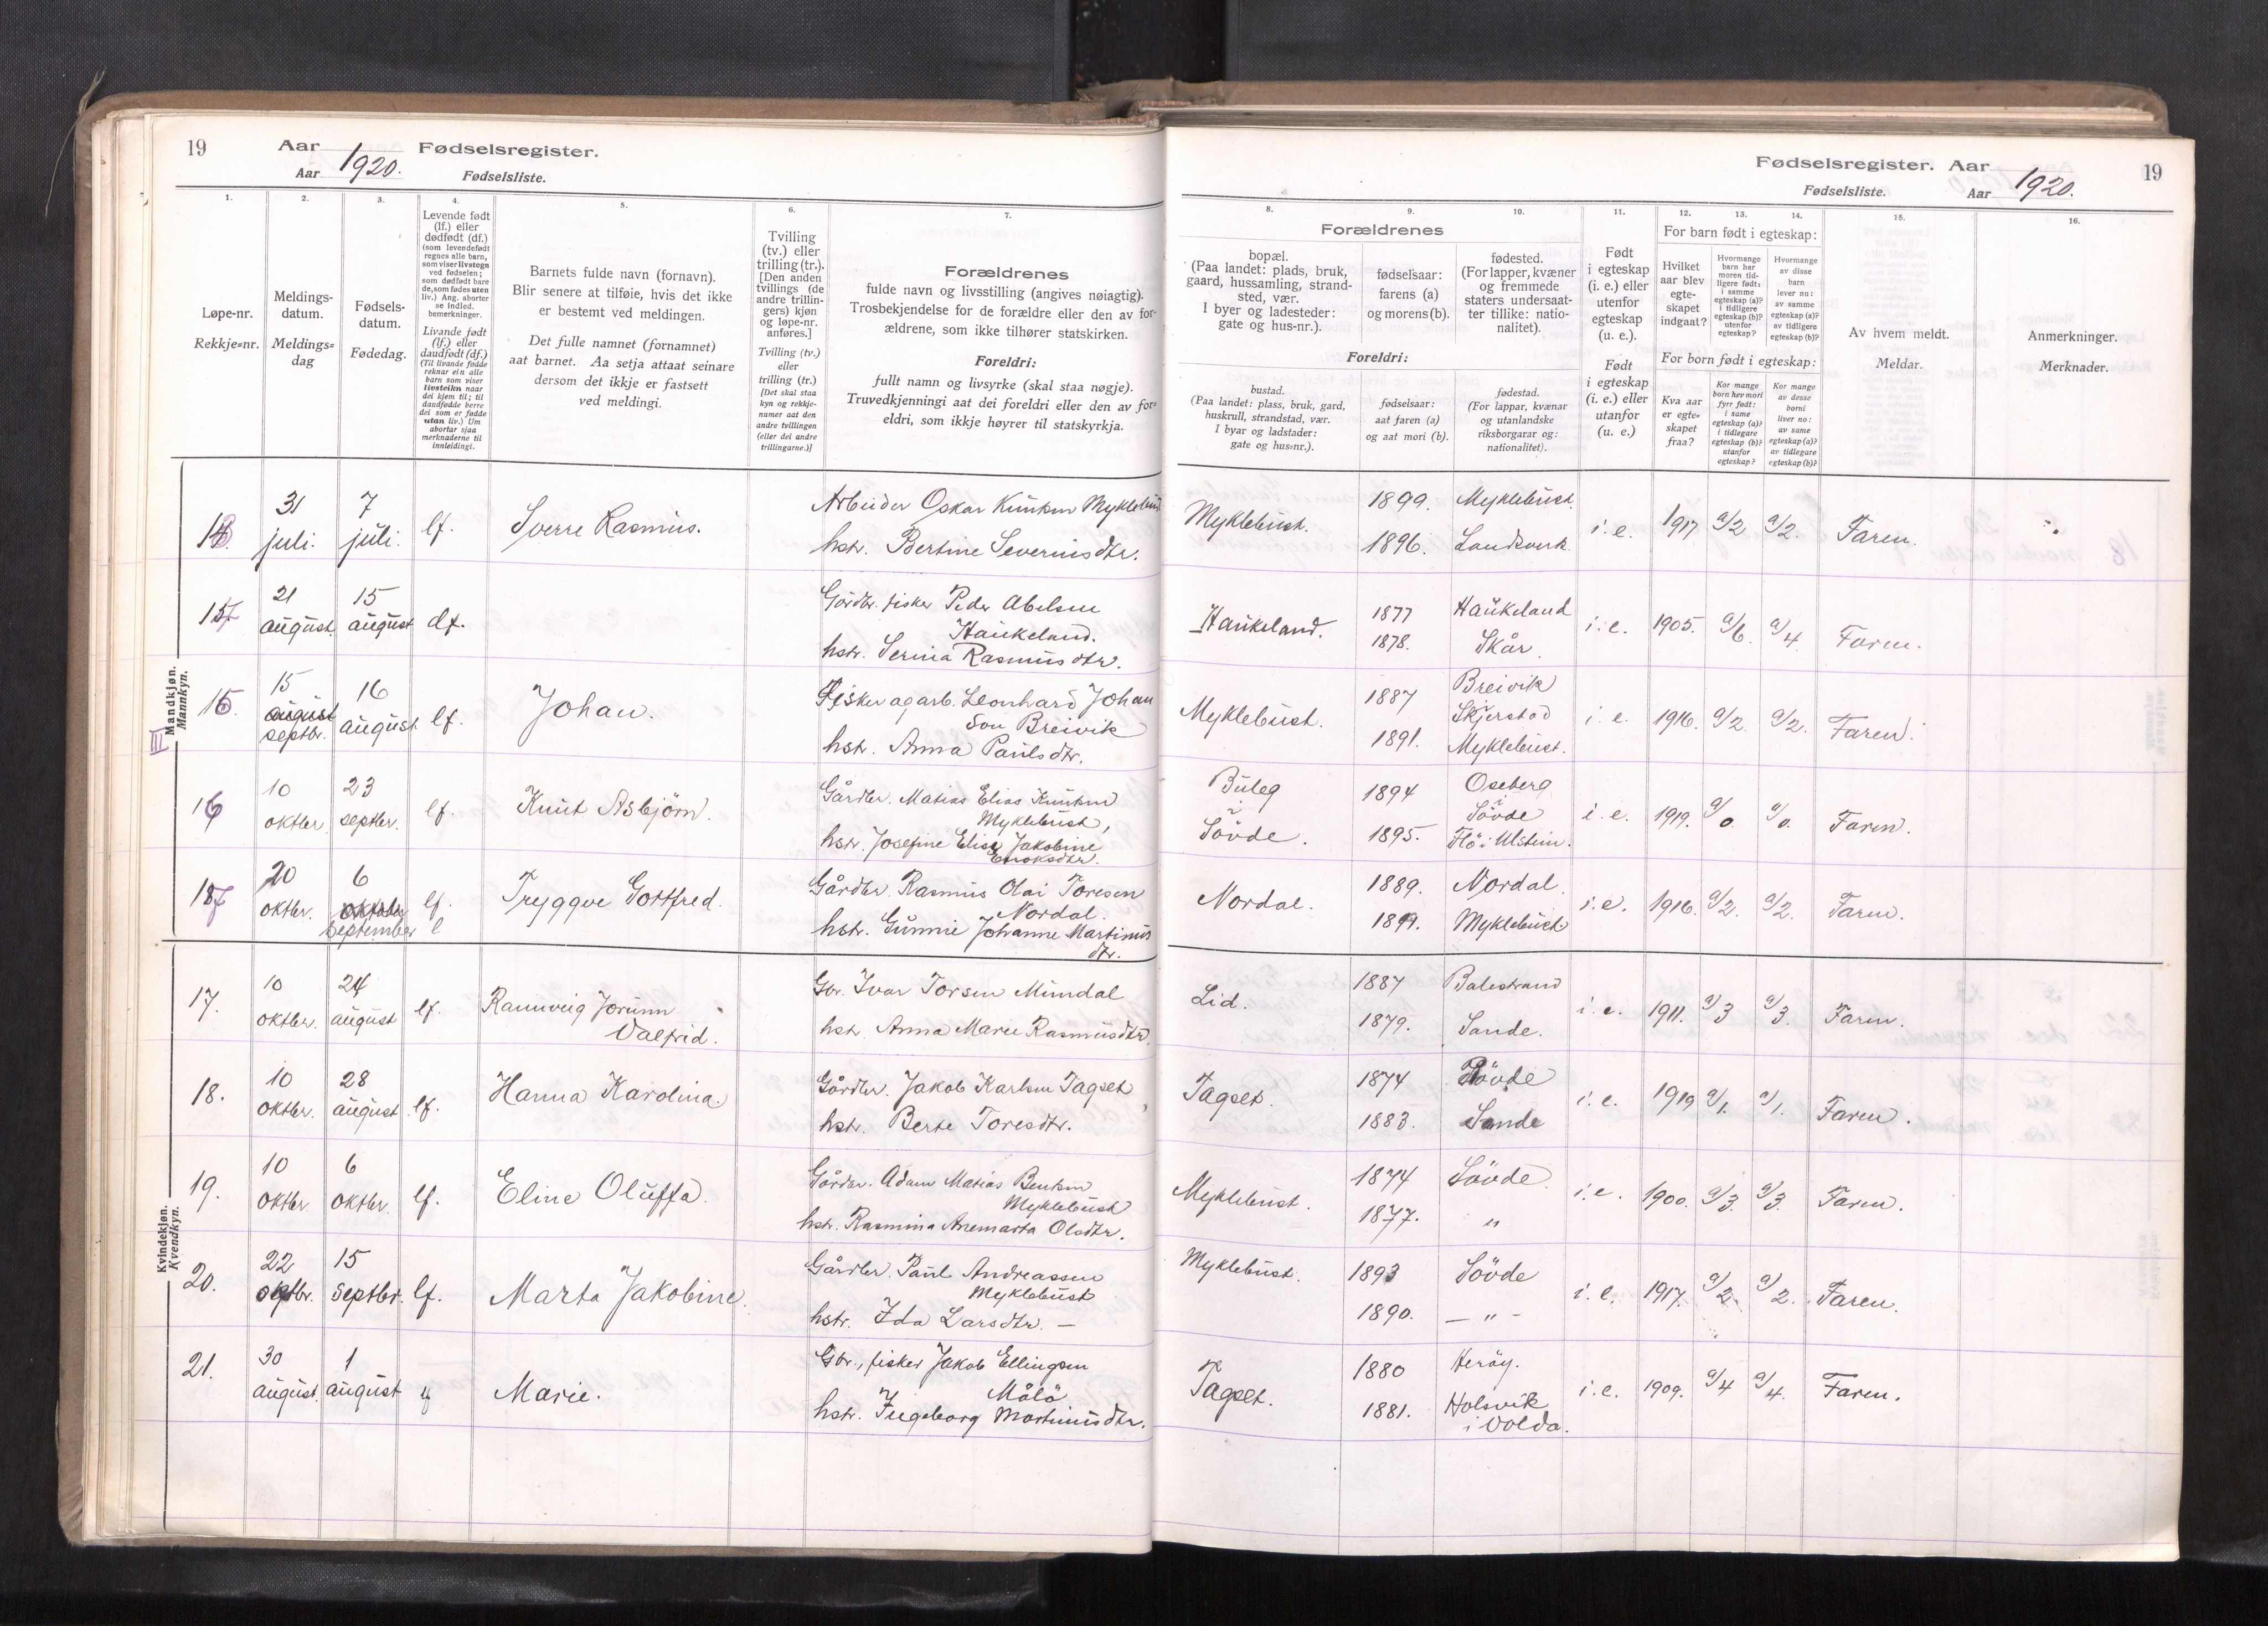 19
Aar
Fødselsregister.
Aar 1920.
Fødselsliste.
1.
2.
3.
4.
5.
6.
7.
Løpe-nr.
Rekkje=nr.
Meldings-
datum.
Meldings=
dag
Fødsels-
datum.
Fødedag.
Levende født
(lf.) eller
dødfødt (df.)
(som levendefødt
regnes alle barn,
som viser livstegn
ved fødselen;
som dødfødt bare
de, som fødes uten
liv.) Ang. aborter
se indled.
bemerkninger.
Livande født
(lf.) eller
daudfødt (df.)
(Til livande fødde
reknar ein alle
barn som viser
livsteikn naar
dei kjem til; til
daudfødde berre
dei som er fødde
utan liv.) Um
abortar sjaa
merknaderne til
innleidingi.
Barnets fulde navn (fornavn).
Blir senere at tilføie, hvis det ikke
er bestemt ved meldingen.
Det fulle namnet (fornamnet)
aat barnet. Aa setja attaat seinare
dersom det ikkje er fastsett
ved meldingi.
Tvilling
(tv.) eller
trilling (tr.).
[Den anden
tvillings (de
andre trillin-
gers) kjøn
og løpe-nr.
anføres.]
Tvilling (tv.)
eller
trilling (tr.)
[Det skal staa
kyn og rekkje-
numer aat den
andre tvillingen
(eller dei andre
trillingarne.)]
Forældrenes
fulde navn og livsstilling (angives nøiagtig).
Trosbekjendelse for de forældre eller den av for-
ældrene, som ikke tilhører statskirken.
Foreldri:
fullt namn og livsyrke (skal staa nøgje).
Truvedkjenningi aat dei foreldri eller den av for=
eldri, som ikkje høyrer til statskyrkja.
Mandkjøn.
Mannkyn.
31
juli.
7
juli.
lf.
Sverre Rasmus.
Arbeider Oskar Knutsen Myklebust
hstr. Bertine Severinsdtr.
21
august.
15
august
df.
Gårdbr. fisker Peder Abelsen
Haukeland.
hstr. Serina Rasmusdtr.
15
august
septbr.
16
august
lf.
Johan.
Fisker og arb. Leonhard Johan
son Breivik
hstr. Anna Paulsdtr.
16
10
oktbr.
23
septbr.
lf.
Knut Asbjörn.
Gårdbr. Matias Elias Knutsen
Myklebust,
hstr. Josefine Elise Jakobine
Enoksdtr.
20
oktbr.
6
oktober
september
lf.
Tryggve Gottfred.
Gårdbr. Rasmus Olai Toresen
Nordal.
hstr. Gunnie Johanne Martinus
dtr.
Kvindekjøn.
Kvendkyn.
17.
10
oktbr.
24
august
lf.
Rannveig Jorunn
Valfrid.
Gbr. Ivar Torsen Mundal
hstr. Anna Marie Rasmusdtr.
18.
10
oktbr.
28
august
lf.
Hanna Karolina.
Gårdbr. Jakob Karlsen Tagset
hstr. Berte Toresdtr.
19.
10
oktbr.
6
oktbr.
lf.
Eline Oluffa.
Gårdbr. Adam Matias Bentsen
Myklebust
hstr. Rasmina Anemarta Olsdtr.
20.
22
15
septbr.
lf.
Marta Jakobine.
Gårdbr. Paul Andreassen
Myklebust
hstr. Ida Larsdtr. —
21.
30
august.
1
august
lf
Marie.
Gbr., fisker Jakob Ellingsen
Målö
hstr. Ingeborg Martinusdtr.
Fødselsregister. Aar
19
Fødselsliste.
Aar 1920.
8.
9.
10.
11.
12.
13.
14.
15.
16.
Forældrenes
bopæl.
(Paa landet: plads, bruk,
gaard, hussamling, strand-
sted, vær.
I byer og ladesteder:
gate og hus-nr.).
fødselsaar:
farens (a)
og morens (b).
fødested.
(For lapper, kvæner
og fremmede
staters undersaat-
ter tillike: natio-
nalitet).
Foreldri:
bustad.
(Paa landet: plass, bruk, gard,
huskrull, strandstad, vær.
I byar og ladstader:
gate og hus=nr.).
fødselsaar:
aat faren (a)
og aat mori (b).
fødestad.
(For lappar, kvænar
og utanlandske
riksborgarar og:
nationalitet).
Født
i egteskap
(i. e.) eller
utenfor
egteskap
(u. e.).
Født
i egteskap
(i. e.) eller
utanfor
(u. e.)
For barn født i egteskap:
Hvilket
aar blev
egte-
skapet
indgaat?
Hvormange
barn har
moren tid-
ligere født:
i samme
egteskap (a)?
i tidligere
egteskap (b)?
utenfor
egteskap?
Hvormange
av disse
barn
lever nu:
av samme
egteskap (a)?
av tidligere
egteskap (b)?
For born født i egteskap:
Kva aar
er egte=
skapet
fraa?
Kor mange
born hev mori
fyrr født:
i same
egteskap (a)?
i tidlegare
egteskap (b)?
utanfor
egteskap?
Kor mange
av desse
borni
liver no:
av same
egteskap (a)?
av tidlegare
egteskap (b)?
Av hvem meldt.
Meldar.
Anmerkninger.
Merknader.
Myklebust.
1899.
1896.
Myklebust.
Landsverk.
i. e.
1917
a/2
a/2.
Faren.
Haukeland.
1877
1878.
Haukeland
Skår.
i. e.
1905.
a/6.
a/4.
Faren.
Myklebust.
1887
1891.
Breivik
Skjerstad
Myklebust.
i. e.
1916.
a/2.
a/2.
Faren.
Buleg
i
Sövde.
1894
1895.
Oseberg
i
Sövde
Flö i Ulstein.
i. e.
1919.
a/0.
a/0.
Faren.
Nordal.
1889.
Nordal.
Myklebust
i. e.
1916.
a/2.
a/2.
Faren.
Lid.
1887
1879.
Balestrand
Sande.
i. e.
1911.
a/3
a/3.
Faren.
Tagset.
1874
1883.
Sövde
Sande
i. e.
1919
a/1.
a/1.
Faren.
Myklebust.
1874
1877.
Sövde.
"
i. e.
1900.
a/3.
a/3.
Faren.
Myklebust.
1893
1890.
Sövde
— " —
i. e.
1917.
a/2.
a/2.
Faren.
Tagset.
1880
1881.
Heröy.
Holsvik
i Volda.
i. e.
1909.
a/4
a/4.
Faren.